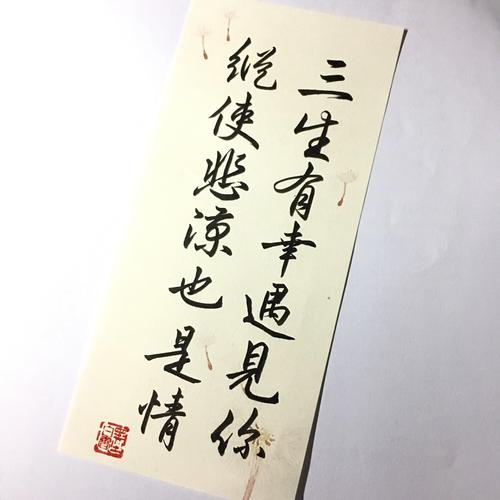 三生有幸遇見你
縱使悲涼也是情